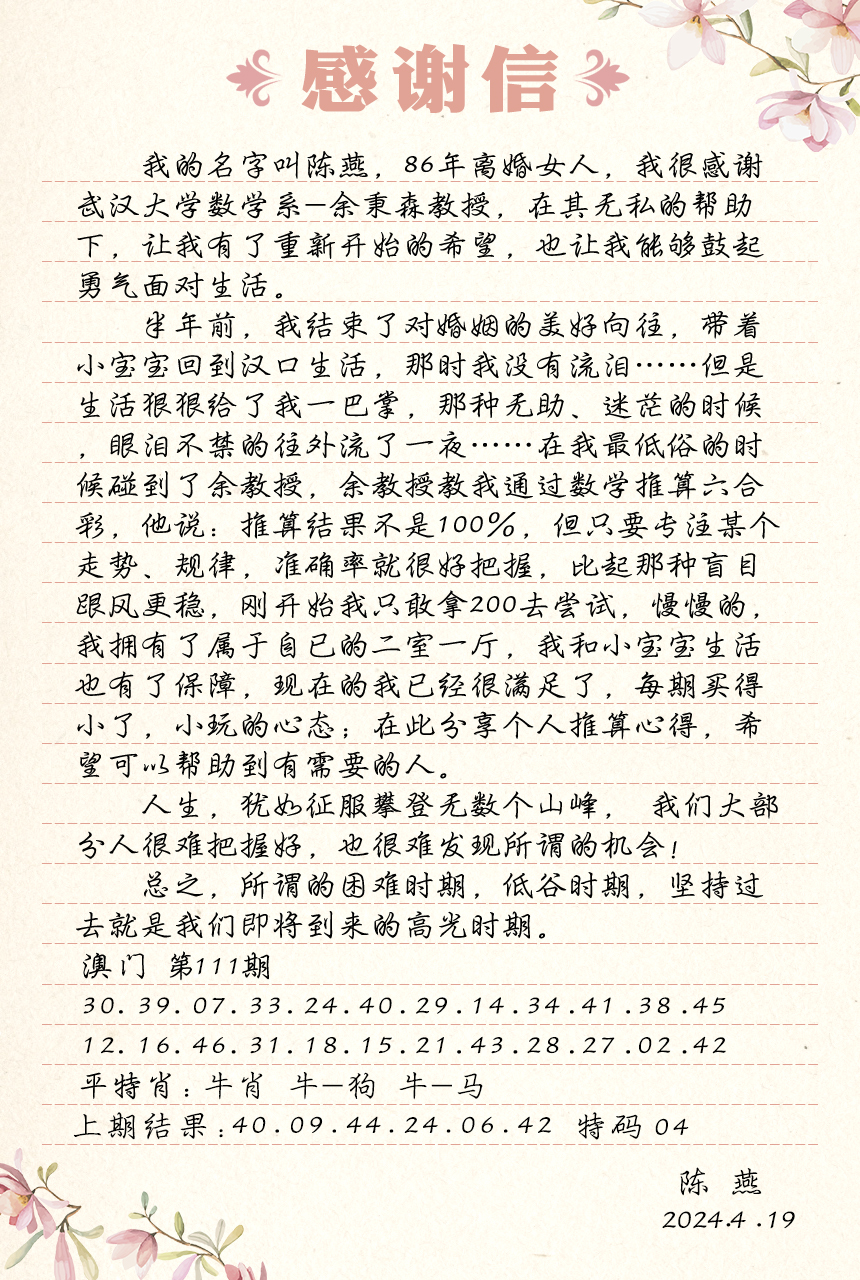 感谢信
我的名字叫陈燕，86年离婚女人，我很感谢
武汉大学数学系—余秉森教授，在其无私的帮助
下，让我有了重新开始的希望，也让我能够鼓起
勇气面对生活。
半年前，我结束了对婚姻的美好向往，带着
小宝宝回到汉口生活，那时我没有流泪……但是
生活狠狠给了我一巴掌，那种无助、迷茫的时候
，眼泪不禁的往外流了一夜……在我最低俗的时
候碰到了余教授，余教授教我通过数学推算六合
彩，他说：推算结果不是100%，但只要专注某个
走势、规律，准确率就很好把握，比起那种盲目
跟风更稳，刚开始我只敢拿200去尝试，慢慢的，
我拥有了属于自已的二室一厅，我和小宝宝生活
也有了保障，现在的我已经很满足了，每期买得
小了，小玩的心态；在此分享个人推算心得，希
望可以帮助到有需要的人。
人生，犹如征服攀登无数个山峰， 我们大部
分人很难把握好，也很难发现所谓的机会！
总之，所谓的困难时期，低谷时期，坚持过
去就是我们即将到来的高光时期。
澳门 第111期
30.39.07.33.24.40.29.14.34.41.38.45
12.16.46.31.18.15.21.43.28.27.02.42
平特肖：牛肖 牛—狗 牛—马
上期结果：40.09.44.24.06.42 特码 04
陈 燕
2024.4.19